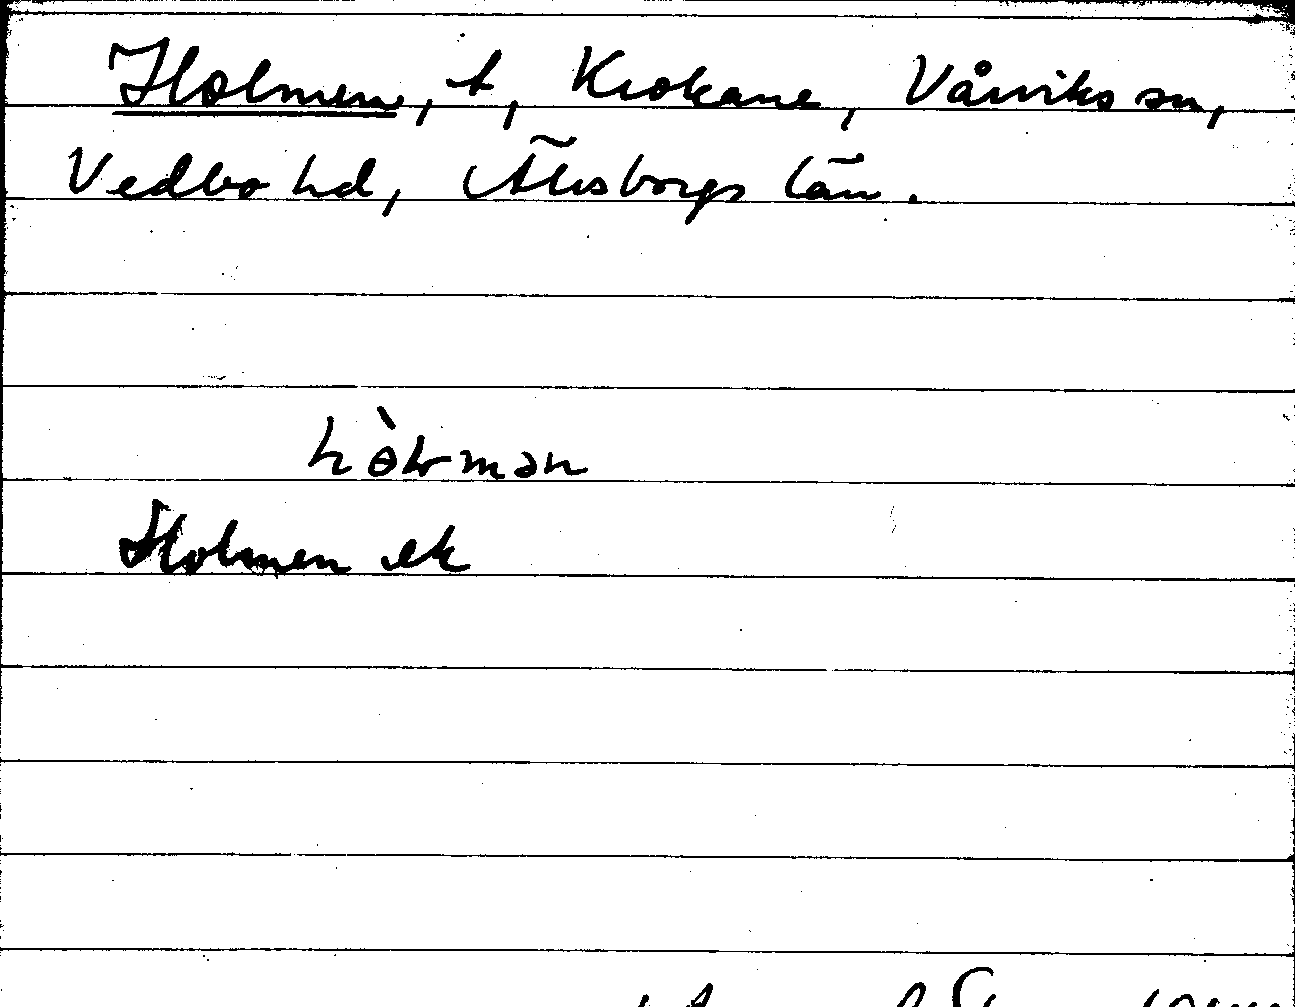 Holmen, t, Krokane, Vårviks sn,
Vedbo hd, Älvsborgs län.
hòlmən
Holmen ek